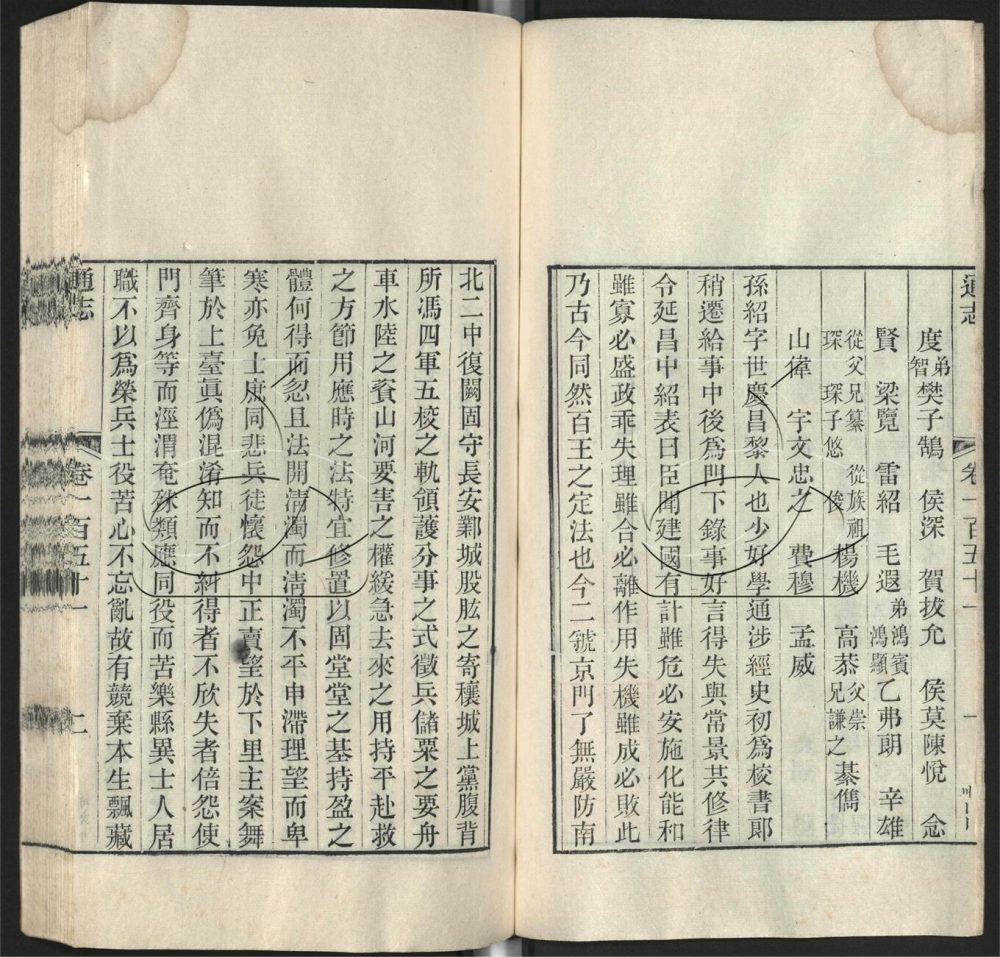 通志 卷一百五十一 一
度弟智樊子鵠 侯深 賀拔允 侯莫陳悅 念
賢 梁覽 雷紹 毛遐弟鴻賓鴻顯乙弗朗 辛雄
從父兄纂從族祖琛琛子悠俊楊機 高恭父崇兄謙之綦儁
山偉 宇文忠之 費穆 孟威
孫紹字世慶昌黎人也少好學通涉經史初爲校書郎
稍遷給事中後爲門下錄事好言得失與常景共修律
令延昌中紹表曰臣聞建國有計雖危必安施化能和
雖寡必盛政乖失理雖合必離作用失機雖成必敗此
乃古今同然百王之定法也今二虢京門了無嚴防南
北二中復闕固守長安鄴城股肱之寄穰城上黨腹背
所馮四軍五校之軌領護分事之式徵兵儲粟之要舟
車水陸之資山河要害之權緩急去來之用持平赴救
之方節用應時之法特宜修置以固堂堂之基持盈之
體何得而忽且法開淸濁而淸濁不平申滯理望而卑
寒亦免士庶同悲兵徒懷怨中正賣望於下里主案舞
筆於上臺眞僞混淆知而不糾得者不欣失者倍怨使
門齊身等而涇渭奄殊類應同役而苦樂縣異士人居
職不以爲榮兵士役苦心不忘亂故有競棄本生飄藏
通志 卷一百五十一 二